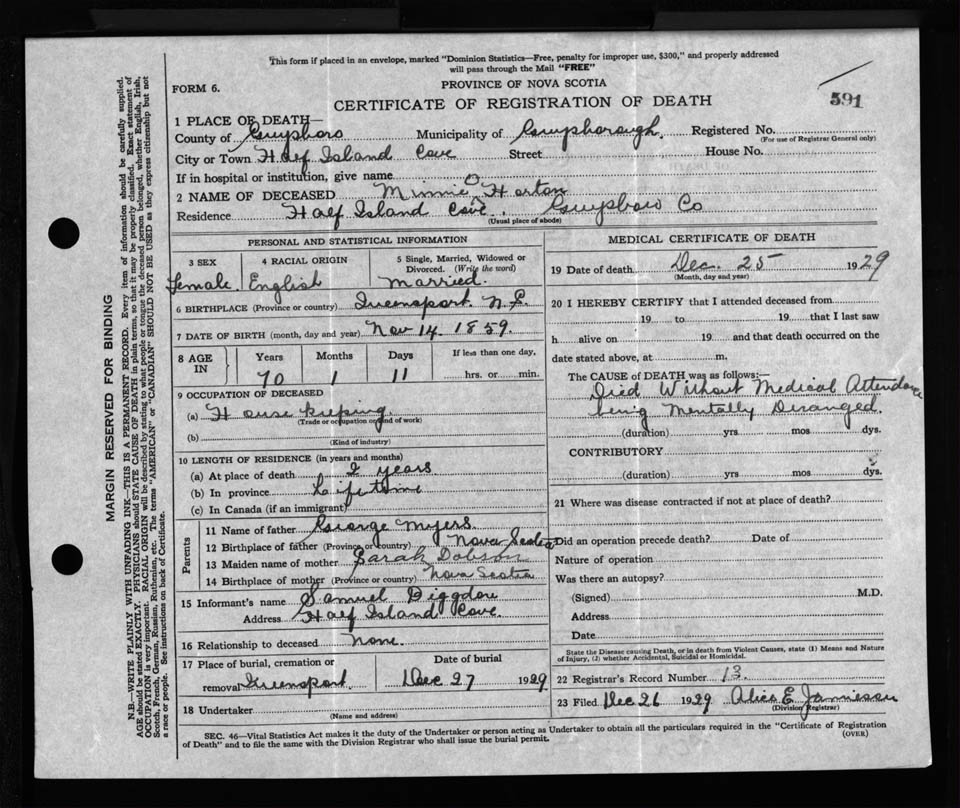 This form if placed in an envelope, marked "Dominion Statistics—Free, penalty for improper use, $300," and properly addressed
will pass through the Mail "FREE"
FORM 6.
PROVINCE OF NOVA SCOTIA
CERTIFICATE OF REGISTRATION OF DEATH
591
1 PLACE OF DEATH—
County of Guysboro Municipality of Guysborough Registered No.
(For use of Registrar General only)
City or Town Half Island Cove Street House No.
If in hospital or institution, give name
2 NAME OF DECEASED Minnie O Horton
Residence Half Island Cove, Guysboro Co
(Usual place of abode)
PERSONAL AND STATISTICAL INFORMATION
3 SEX
Female
4 RACIAL ORIGIN
English
5 Single, Married, Widowed or
Divorced. (Write the word)
Married.
6 BIRTHPLACE (Province or country) Queensport N.S.
7 DATE OF BIRTH (month, day and year) Nov 14 1859.
8 AGE
IN
Years Months Days
70 1 11
If less than one day,
hrs. or min.
9 OCCUPATION OF DECEASED
(a) House keeping
(Trade or occupation or kind of work)
(b)
(Kind of industry)
10 LENGTH OF RESIDENCE (in years and months)
(a) At place of death 2 years
(b) In province Lifetime
(c) In Canada (if an immigrant)
Parents
11 Name of father George Myers
12 Birthplace of father (Province or country) Nova Scotia
13 Maiden name of mother Sarah Dobson
14 Birthplace of mother (Province or country) Nova Scotia
15 Informant's name Samuel Diggdon
Address Half Island Cove.
16 Relationship to deceased None
17 Place of burial, cremation or
removal Queensport
Date of burial
Dec 27 1929
18 Undertaker
(Name and address)
MEDICAL CERTIFICATE OF DEATH
19 Date of death Dec. 25 1929
(Month, day and year)
20 I HEREBY CERTIFY that I attended deceased from
19 to 19 that I last saw
h alive on 19 and that death occurred on the
date stated above, at m.
The CAUSE of DEATH was as follows:—
Died Without Medical Attendance
being Mentally Deranged.
(duration) yrs mos dys.
CONTRIBUTORY
(duration) yrs mos dys.
21 Where was disease contracted if not at place of death?
Did an operation precede death? Date of
Nature of operation
Was there an autopsy?
(Signed) M.D.
Address
Date
State the Disease causing Death, or in death from Violent Causes, state (1) Means and Nature
of Injury, (2) whether Accidental, Suicidal or Homicidal.
22 Registrar's Record Number 13.
23 Filed Dec 26 1929 Alice E. Jamieson
(Division Registrar)
SEC. 46—Vital Statistics Act makes it the duty of the Undertaker or person acting as Undertaker to obtain all the particulars required in the "Certificate of Registration
of Death" and to file the same with the Division Registrar who shall issue the burial permit.
(OVER)
MARGIN RESERVED FOR BINDING
N.B.—WRITE PLAINLY WITH UNFADING INK—THIS IS A PERMANENT RECORD. Every item of information should be carefully supplied.
AGE should be stated EXACTLY. PHYSICIANS should STATE CAUSE OF DEATH in plain terms, so that it may be properly classified. Exact statement of
OCCUPATION is very important. RACIAL ORIGIN will be described by stating to what people or tongue the deceased person belonged, whether English, Irish,
Scotch, French, German, Russian, Ruthenian, etc. The terms "AMERICAN" or "CANADIAN" SHOULD NOT BE USED as they express citizenship but not
a race or people. See instructions on back of Certificate.